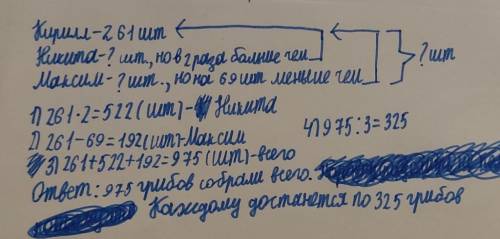 Кирилл-261шт
Никита-? шт., но в 2 раза больше чем
? шт
Максим-? шт., но на 69 шт меньше чем
1) 261·2=522(шт)- Никита
2) 261-69=192(шт)-Максим
4) 975:3=325
3) 261+522+192=975(шт)-всего
Ответ: 975 грибов собрали всего.
Каждому достанется по 325 грибов